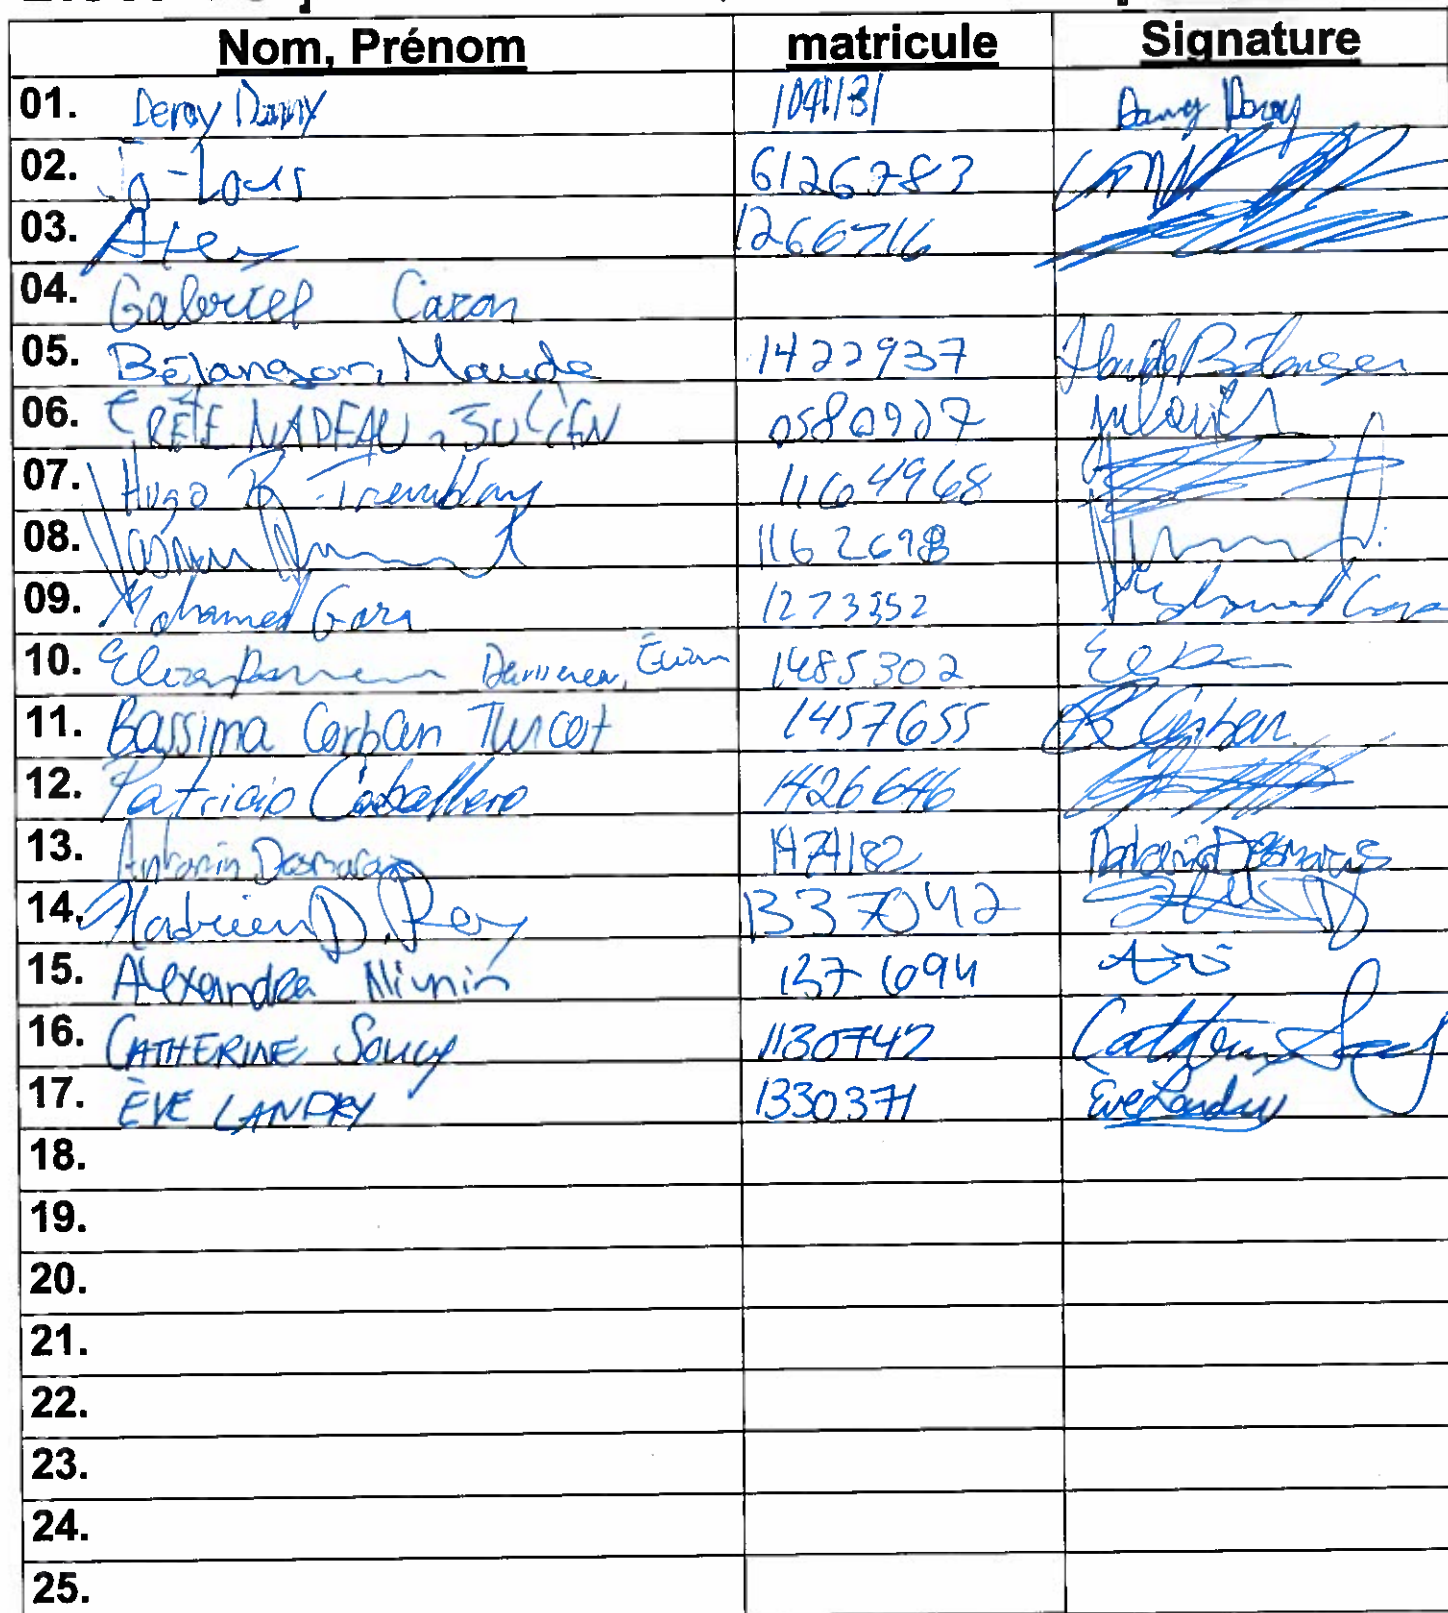 Nom, Prénom matricule Signature
01. Deroy Dany 1041131 Dany Deroy
02. Jo-Louis 6126783
03. Alex 1266716
04. Gabriel Caron
05. Bélanger, Maude 1422937 Maude Bélanger
06. CRÊTE NADEAU, JULIEN 0580907
07. Hugo B. Tremblay 1164968
08. 1162698
09. Mohamed Gara 1273352 Mohamed Gara
10. 1485302
11. Bassima Corban Turcot 1457655 B Corban
12. Patricio Caballero 1426646
13. Antonin Desmarais 1474182 Antonin Desmarais
14. D. Roy 1337042
15. Alexandra 1371694
16. CATHERINE Soucy 1130742 Catherine Soucy
17. ÈVE LANDRY 1330371 Eve Landry
18.
19.
20.
21.
22.
23.
24.
25.